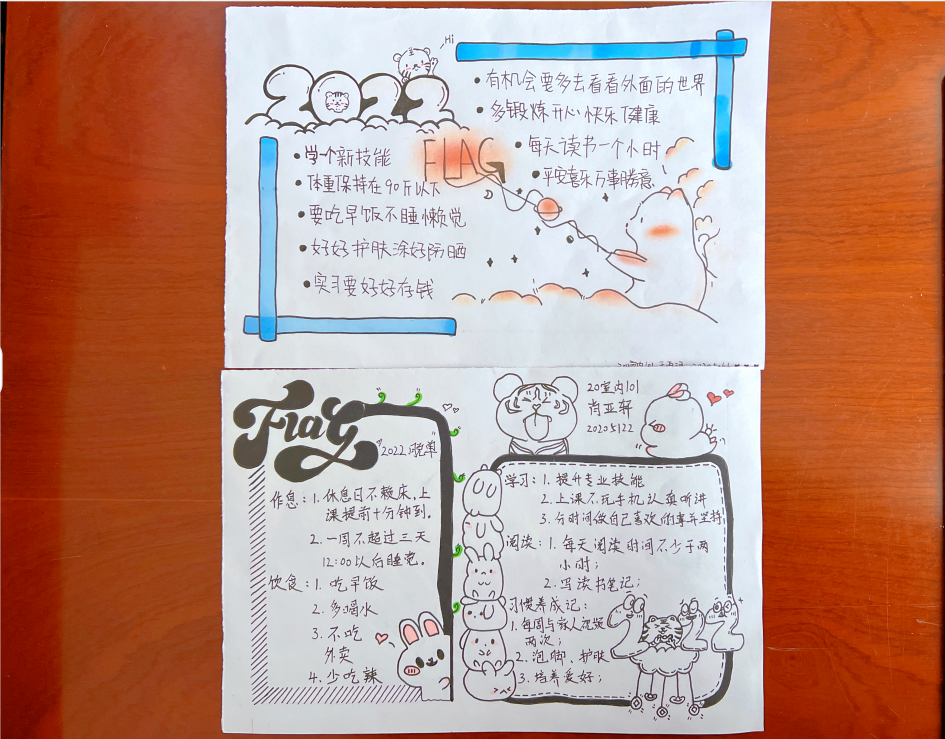 Hi
2022
有机会要多去看看外面的世界
多锻炼开心快乐健康
每天读书一个小时
平安喜乐万事胜意
FLAG
学一个新技能
体重保持在90斤以下
要吃早饭不睡懒觉
好好护肤涂好防晒
实习要好好存钱
FlaG
2022
作息：1. 休息日不赖床，上
课提前十分钟到．
2. 一周不超过三天
12:00以后睡觉。
饮食：1. 吃早饭
2. 多喝水
3. 不吃
外卖
4. 少吃辣
20室内101
肖亚轩
20205122
学习：1. 提升专业技能
2. 上课不玩手机认真听讲
3. 分时间做自己喜欢的事并坚持
阅读：1. 每天阅读时间不少于两
小时；
2. 写读书笔记；
习惯养成记：
1. 每周与家人视频
两次；
2. 泡脚、护肤
3. 培养爱好；
2022